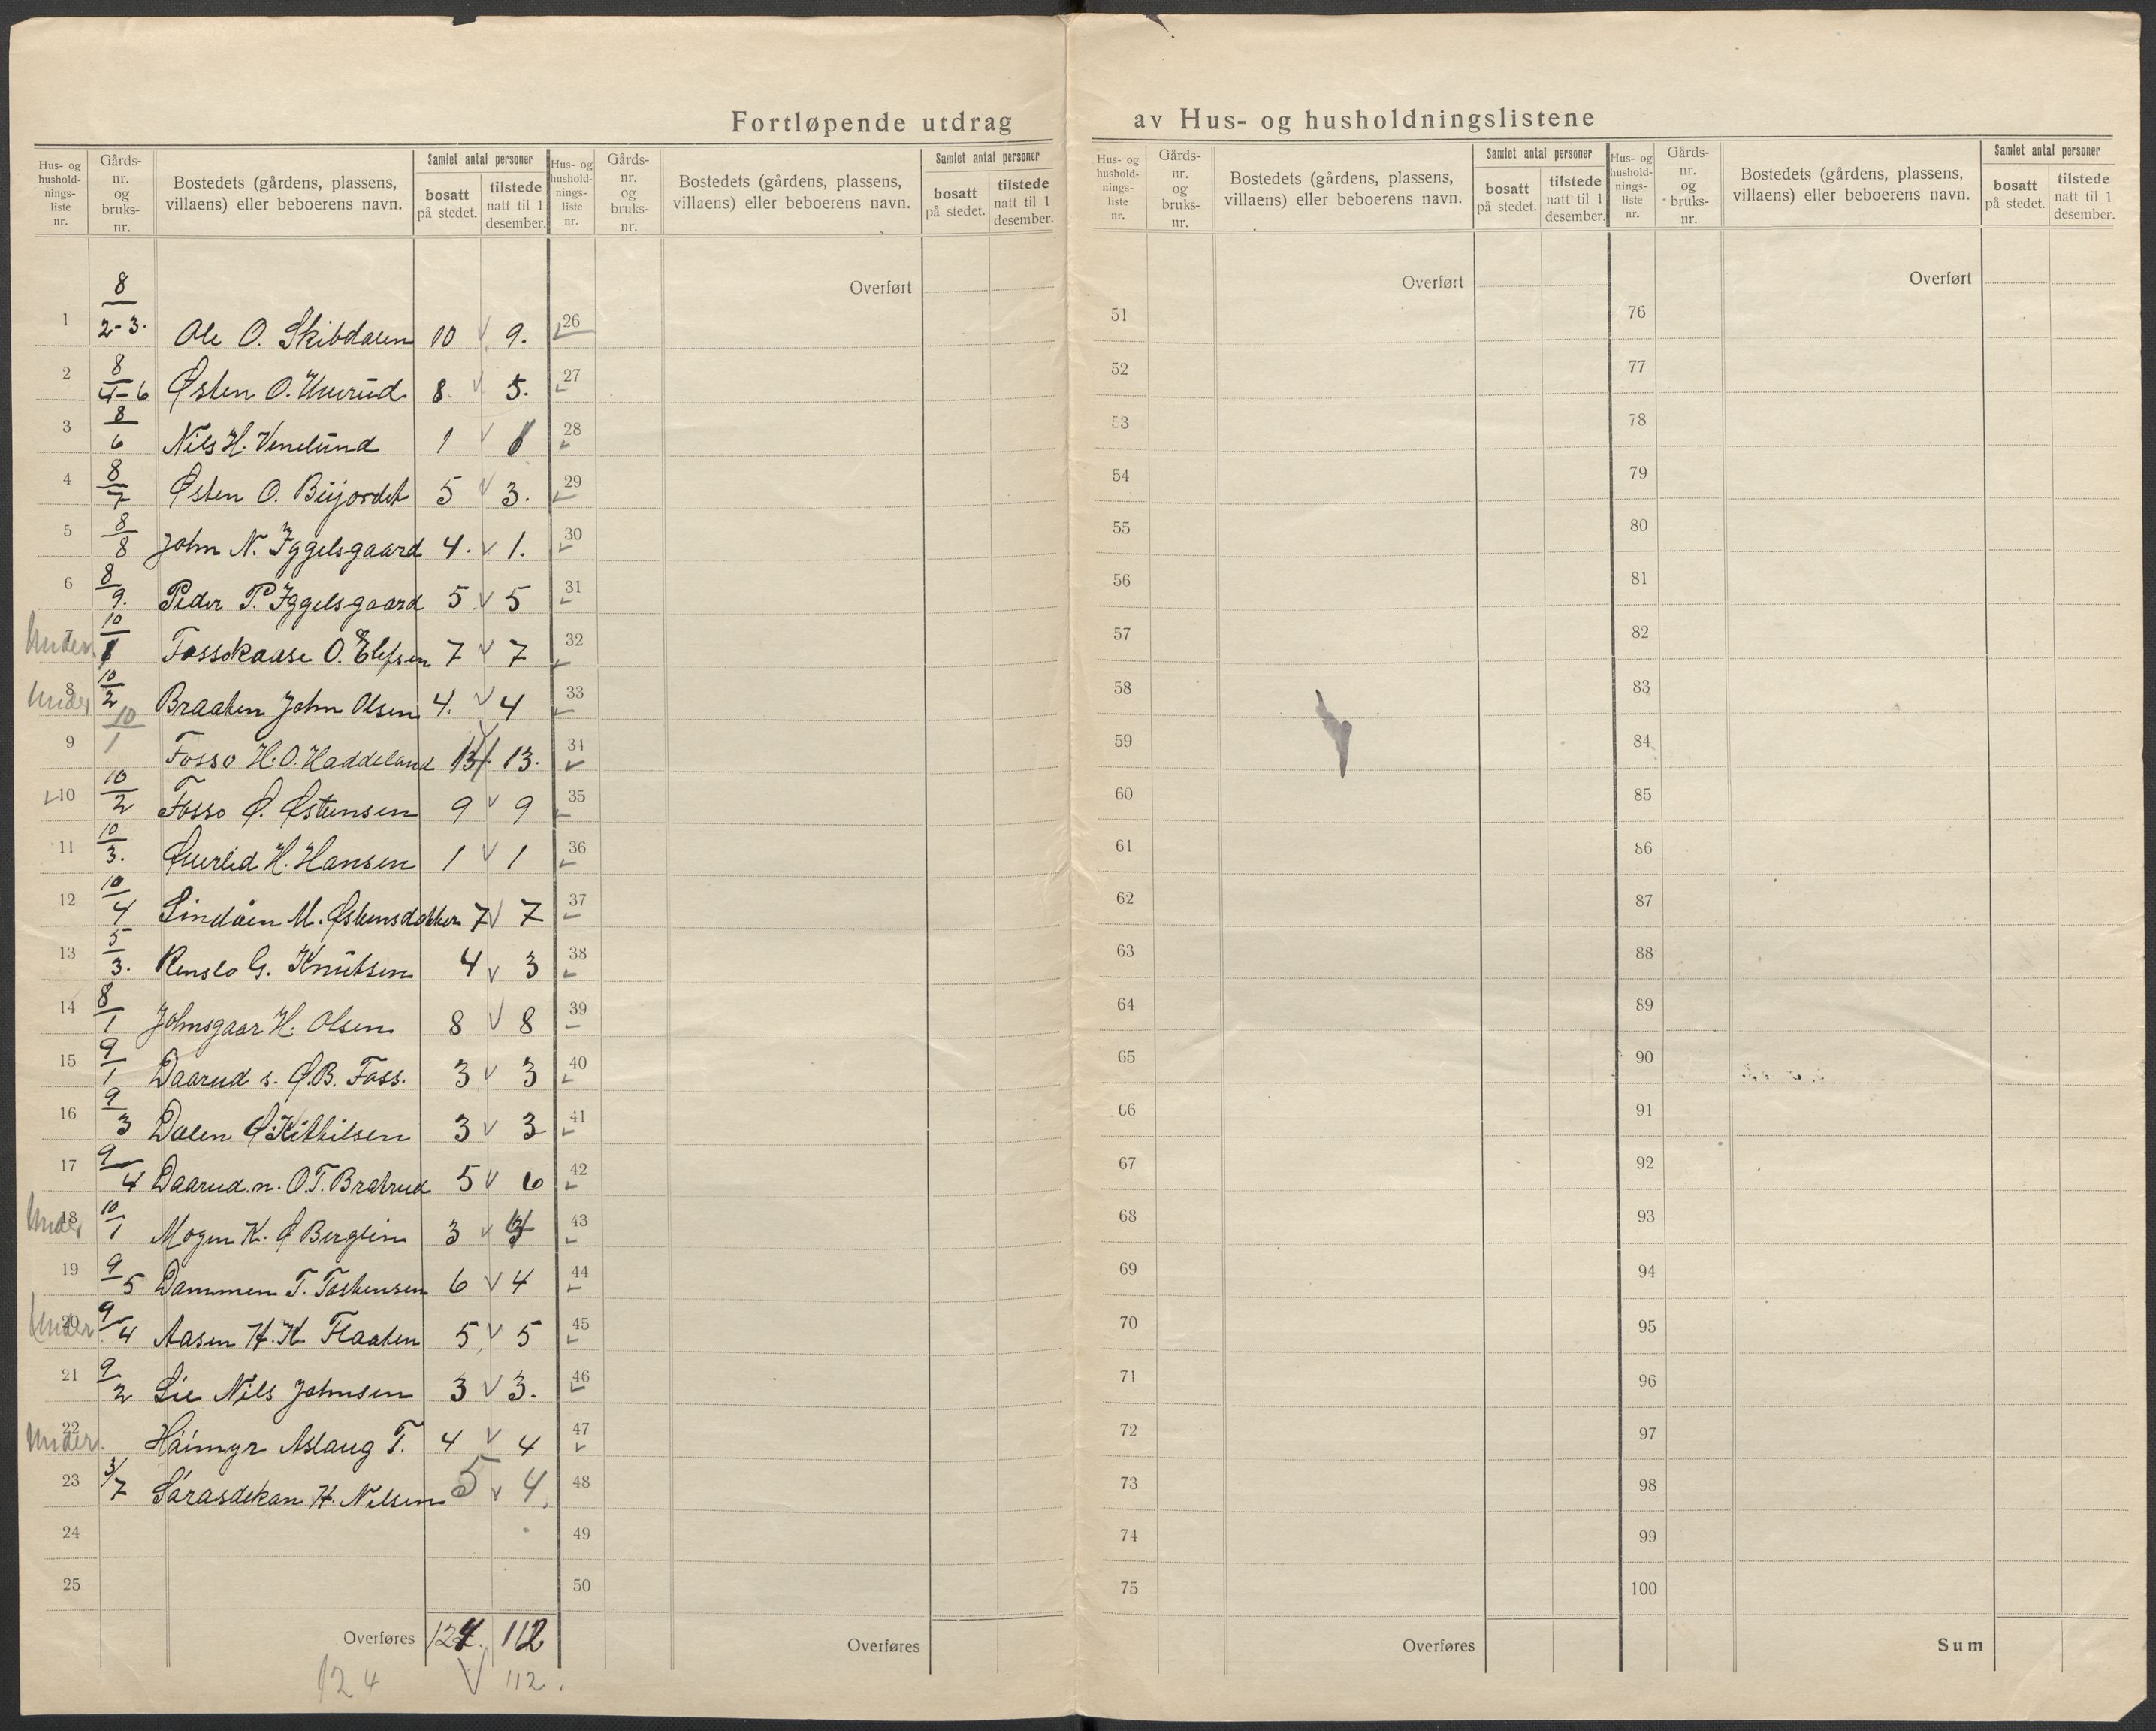 Fortløpende utdrag av Hus- og husholdningslistene
Hus- og hushold-nings-liste nr. Gårds-nr. og bruks-nr. Bostedets (gårdens, plassens, villaens) eller beboerens navn. Samlet antal personer bosatt på stedet. tilstede natt til 1 desember.
Hus- og hushold-nings-liste nr. Gårds-nr. og bruks-nr. Bostedets (gårdens, plassens, villaens) eller beboerens navn. Samlet antal personer bosatt på stedet. tilstede natt til 1 desember.
Hus- og hushold-nings-liste nr. Gårds-nr. og bruks-nr. Bostedets (gårdens, plassens, villaens) eller beboerens navn. Samlet antal personer bosatt på stedet. tilstede natt til 1 desember.
Hus- og hushold-nings-liste nr. Gårds-nr. og bruks-nr. Bostedets (gårdens, plassens, villaens) eller beboerens navn. Samlet antal personer bosatt på stedet. tilstede natt til 1 desember.
1 8/2-3. Ole O. Skibdalen 10 v 9.
2 8/4-6 Østen O. 8. v 5.
3 8/6 Nils H. Venelund 1 v
4 8/7 Østen O. Büjordet 5 v 3.
5 8/8 John N. Iggelsgaard 4. v 1.
6 8/9. Peder P. Iggelsgaard 5 v 5
Under 7 10/1 Fossokaase O. Elefsen 7 v 7
Under 8 10/2 Braaten John Olsen 4. v 4
9 10/1 Fosso H. O. Haddeland 13. 13.
10 10/2 Fosso Ø. Østensen 9 v 9
11 10/3. H. Hansen 1 v 1
12 10/4 Lindåen M. Østensdatter 7 v 7
13 5/3. Renslo G. Knutsen 4 v 3
14 8/1 Johnsgaar H. Olsen 8 v 8
15 9/1 Daarud s. Ø.B. Foss. 3 v 3
16 9/3 Dalen Ø. Kittilsen 3 v 3
17 9/4 Daarud n. O.T. Bratrud 5 v 6
Under 18 10/1 Mogen K. Ø 3 v
19 9/5 Dammen T. Tostensen 6 v 4
Under 20 9/4 Aasen H. K. Flaaten 5 v 5
21 9/2 Lie Nils Johnsen 3 v 3.
Under. 22 Håimyr Aslaug T. 4 v 4
23 3/7 H. Nilsen 5 v 4.
24
25
Overføres 124. 112
124 v 112.
Overført
26
27
28
29
30
31
32
33
34
35
36
37
38
39
40
41
42
43
44
45
46
47
48
49
50
Overføres
Overført
51
52
53
54
55
56
57
58
59
60
61
62
63
64
65
66
67
68
69
70
71
72
73
74
75
Overføres
Overført
76
77
78
79
80
81
82
83
84
85
86
87
88
89
90
91
92
93
94
95
96
97
98
99
100
Sum